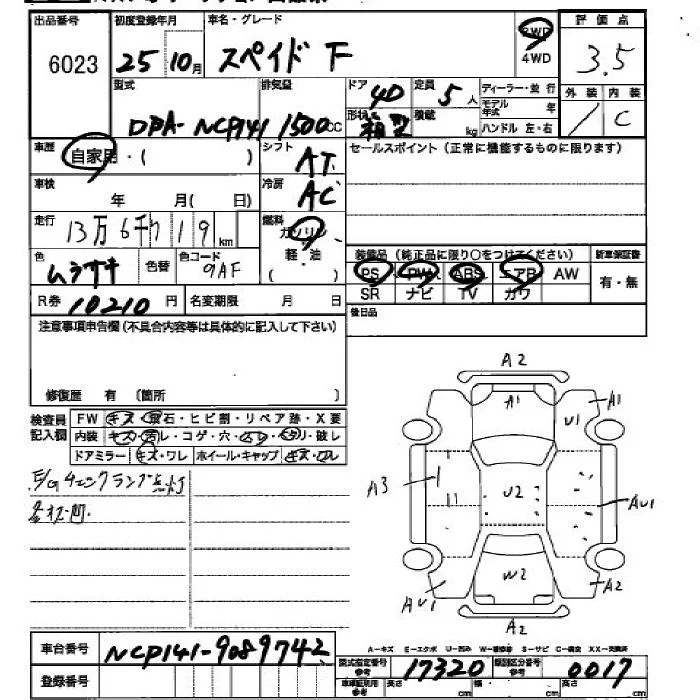 出品番号 初度登録年月 車名・グレード 評価点
6023 25 10月 スペイド F 2WD 4WD 3.5
型式 排気量 ドア 4D 定員 5人 ディーラー・並行 外装 内装
DBA-NCP141 1500cc 形状 箱型 積載 kg モデル年式 年 / C
ハンドル 左・右
車歴 自家用・( ) シフト AT セールスポイント(正常に機能するものに限ります)
車検 年 月( 日) 冷房 AC
走行 13万6千719km 燃料 ガソリン
軽・油 装備品(純正品に限り〇をつけてください) 新車保証書
色 ムラサキ 色替 色コード 9AF PS PW ABS エアB AW 有・無
R券 10210円 名変期限 月 日 SR ナビ TV カワ
注意事項申告欄(不具合内容等は具体的に記入して下さい) 後日品
修復歴 有 〔箇所 〕
検査員 FW キズ・飛石・ヒビ割・リペア跡・X要
記入欄 内装 キズ・汚レ・コゲ・穴・スレ・ヘタリ・破レ
ドアミラー キズ・ワレ ホイール・キャップ キズ・ワレ
E/Gチェックランプ点灯
A2
A1 U1 A1
A3 U2 AU1
W2
AU1 A2
A2
A-キズ E-エクボ U-凹み W-補修跡 S-サビ C-腐食 XX-交換済
車台番号 NCP141-9089742
型式指定番号 参考 17320 類別区分番号 参考 0017
登録番号 車庫証明用 参考 長さ cm 幅 cm 高さ cm